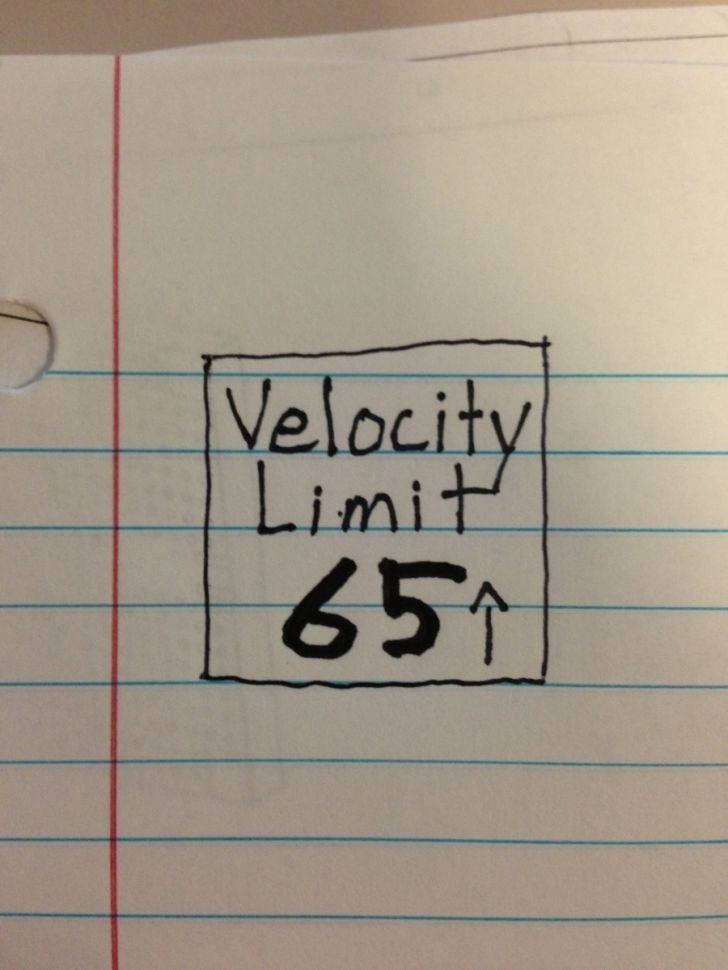 Velocity
Limit
65↑